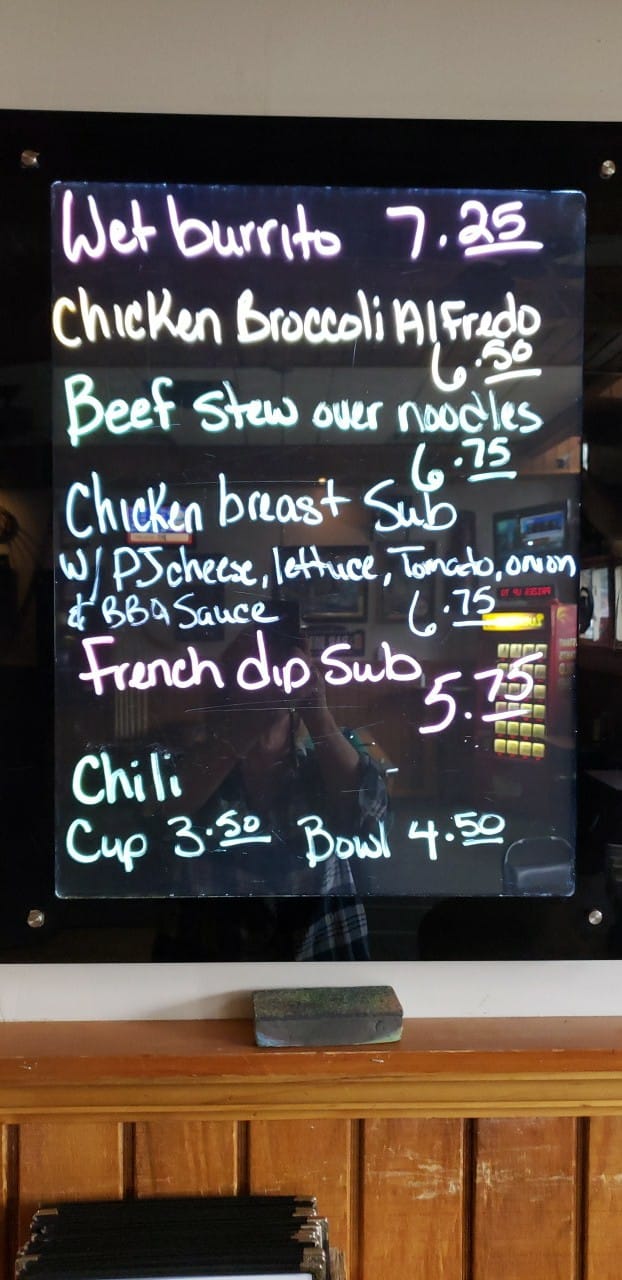 Wet burrito 7.25
Chicken Broccoli Alfredo
6.50
Beef Stew over noodles
6.75
Chicken breast Sub
W/ PJ cheese, lettuce, Tomato, onion
& BBQ Sauce 6.75
French dip Sub 5.75
Chili
Cup 3.50 Bowl 4.50